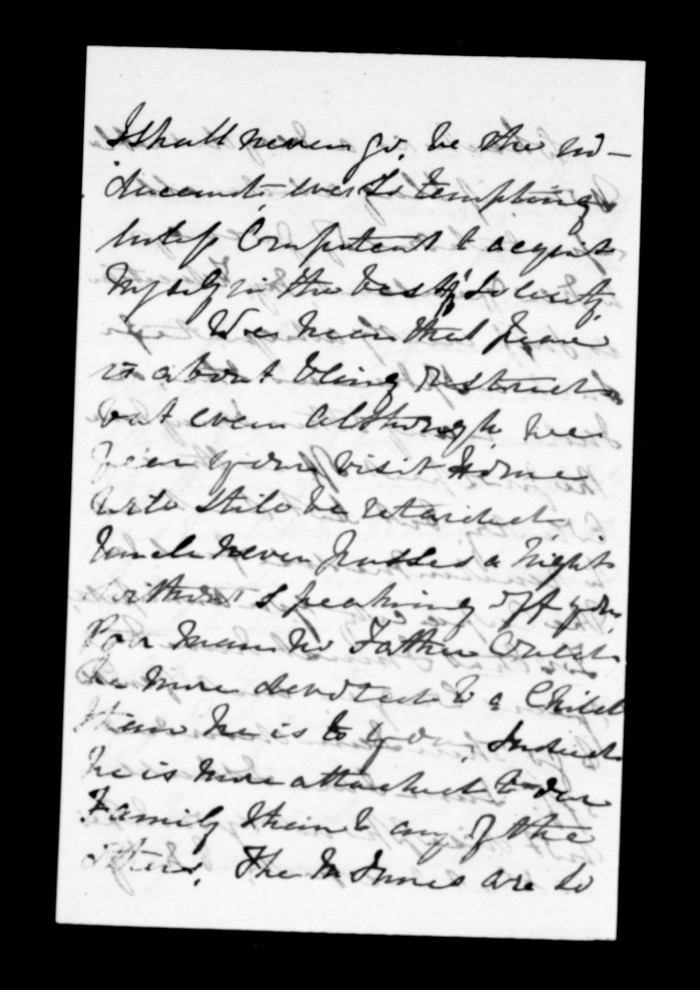 I shall never go, be the in-
ducement ever so tempting
unless Competent to acquit
Myself in the best Society
We hear that peace
is about being restored
but even although we
fear your visit home
will still be retarded
Uncle never passes a night
without speaking off you
Poor man no Father Could
be more devoted to a Child
than he is to you, Indeed
he is more attached to our
Family than to any of the
others. The McInnes are so